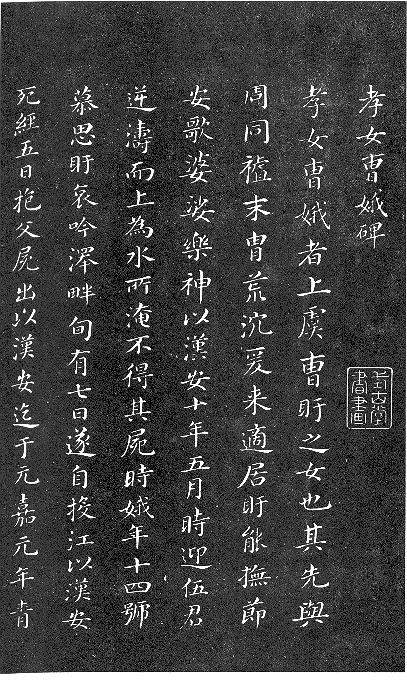 孝女曹娥碑
孝女曹娥者上虞曹盱之女也其先與
周同祖末冑荒沉爰来適居盱能撫節
安歌婆娑樂神以漢安十年五月時迎伍君
逆濤而上為水所淹不得其屍時娥年十四號
慕思盱哀吟澤畔旬有七日遂自投江以漢安
死經五日抱父屍出以漢安迄于元嘉元年青
古堂書畫